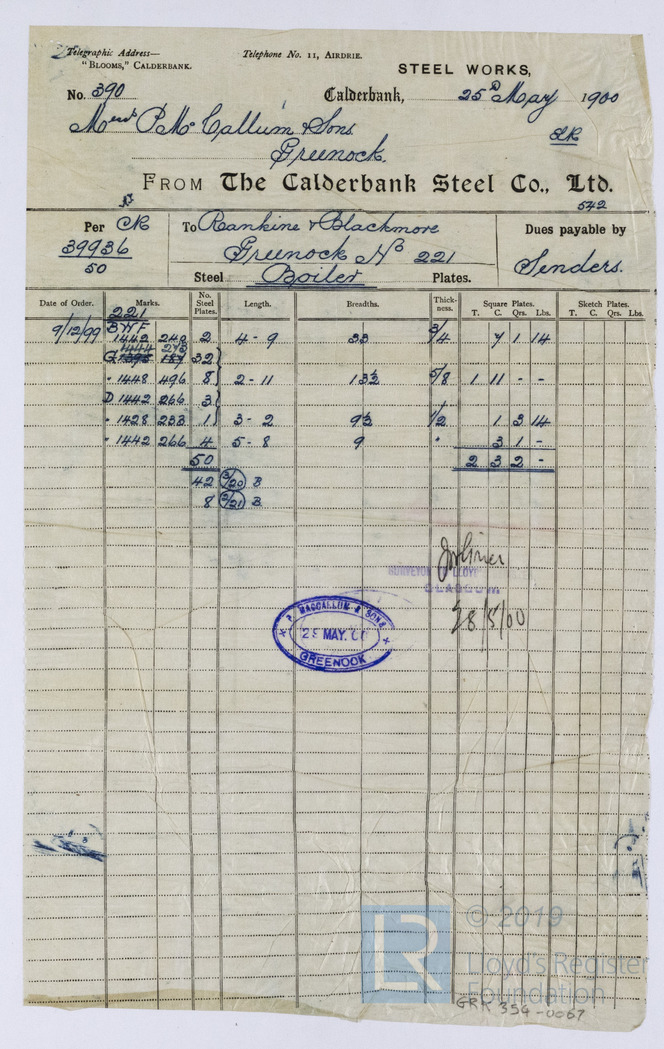 Telegraphic Address—
"BLOOMS," CALDERBANK.
Telephone No. 11, AIRDRIE.
STEEL WORKS,
No. 390
Calderbank, 25th May 1900
Messrs P. Mc Callum & Sons
Greenock.
FROM The Calderbank Steel Co., Ltd.
542
Per CR
39936
50
To Rankine & Blackmore
Greenock No 221
Steel Boiler Plates.
Dues payable by
Senders.
Date of Order. Marks. No. Steel Plates. Length. Breadths. Thickness. Square Plates. T. C. Qrs. Lbs. Sketch Plates. T. C. Qrs. Lbs.
221
9/12/99 BWF
1442 240 2 4-9 33 3/4 7 1 14
1444 243
G 1393 187 32
" 1448 496 8 2-11 13½ 5/8 1 11 - -
D 1442 266 3
" 1428 233 1 3-2 9½ 1/2 1 3 14
" 1442 266 4 5-8 9 " 3 1 -
50 2 3 2 -
42 B
8 B
SURVEYOR LLOYD'S
GLASGOW
28/5/00
P. MACCALLUM & SONS
29 MAY. 00
GREENOCK
LR
© 2019
Lloyd's Register
Foundation
GRK 354-0067